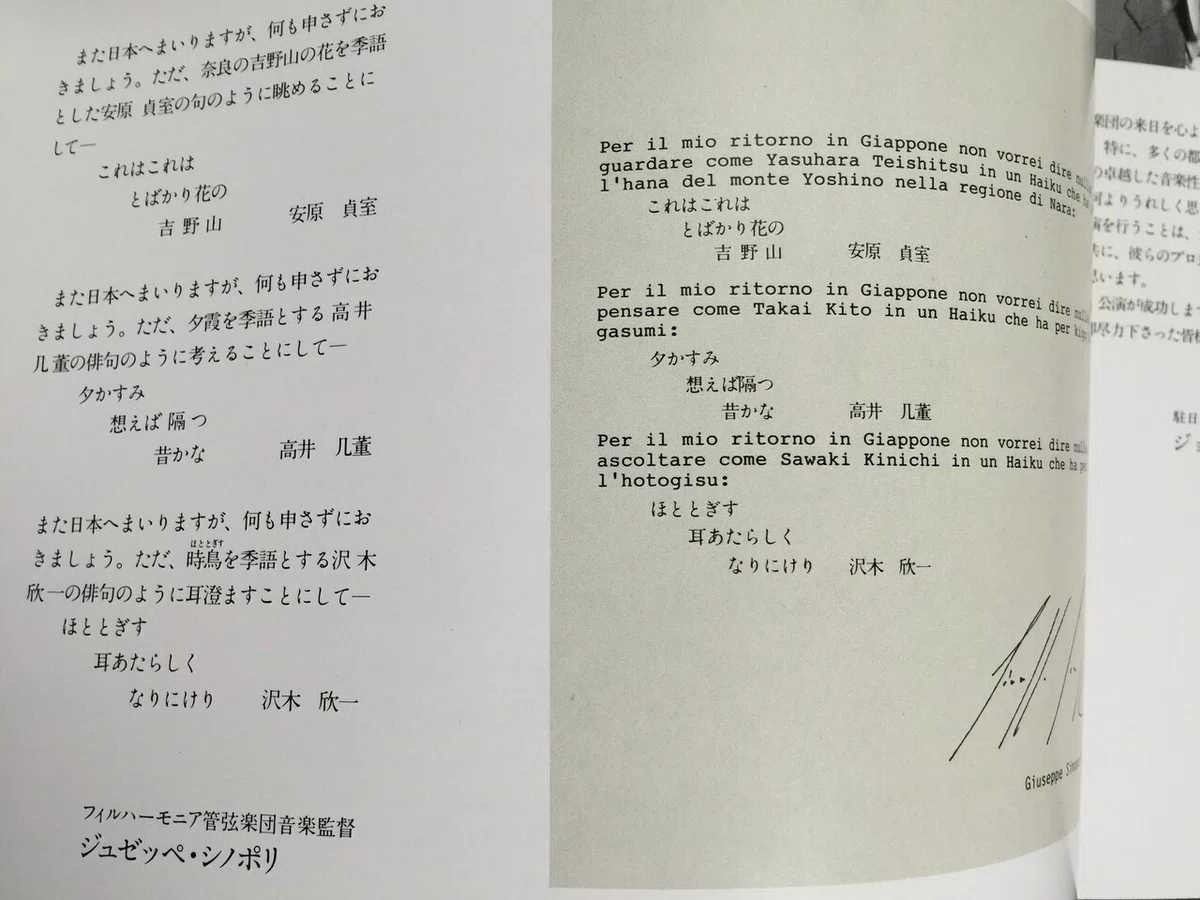 また日本へまいりますが、何も申さずにお
きましょう。ただ、奈良の吉野山の花を季語
とした安原 貞室の句のように眺めることに
して―
これはこれは
とばかり花の
吉野山 安原 貞室
また日本へまいりますが、何も申さずにお
きましょう。ただ、夕霞を季語とする高井
几董の俳句のように考えることにして―
夕かすみ
想えば隔つ
昔かな 高井 几董
また日本へまいりますが、何も申さずにお
きましょう。ただ、時鳥を季語とする沢木
ほととぎす
欣一の俳句のように耳澄ますことにして―
ほととぎす
耳あたらしく
なりにけり 沢木 欣一
フィルハーモニア管弦楽団音楽監督
ジュゼッペ・シノポリ
Per il mio ritorno in Giappone non vorrei dire
guardare come Yasuhara Teishitsu in un Haiku che ha
l'hana del monte Yoshino nella regione di Nara:
これはこれは
とばかり花の
吉野山 安原 貞室
Per il mio ritorno in Giappone non vorrei dire
pensare come Takai Kito in un Haiku che ha per
gasumi:
夕かすみ
想えば隔つ
昔かな 高井 几董
Per il mio ritorno in Giappone non vorrei dire
ascoltare come Sawaki Kinichi in un Haiku che ha
l'hotogisu:
ほととぎす
耳あたらしく
なりにけり 沢木 欣一
Giuseppe
楽団の来日を心よ
特に、多くの都
の卓越した音楽性
何よりうれしく思
演を行うことは、
共に、彼らのプロ
思います。
公演が成功しま
尽力下さった皆様
駐日
ジョ